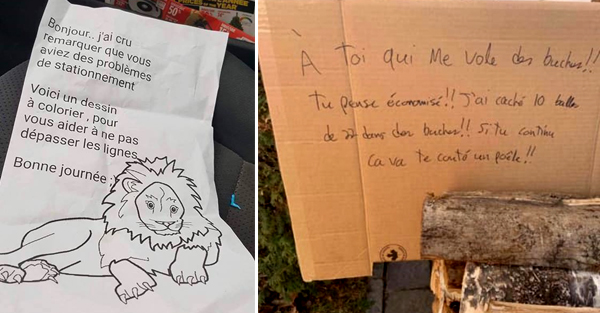 Bonjour.. j'ai cru
remarquer que vous
aviez des problèmes
de stationnement
Voici un dessin
à colorier , pour
vous aider à ne pas
dépasser les lignes
Bonne journée :)
À Toi qui Me Vole des buches!!
Tu pense économisé!! J'ai caché 10 balles
de 22 dans des buches!! Si tu continu
Ca va te couté un poêle!!